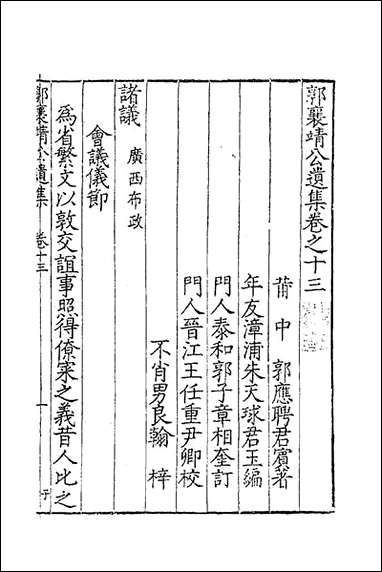 郭襄靖公遺集卷之十三
莆中郭應聘君賓著
年友漳浦朱天球君玉編
門人泰和郭子章相奎訂
門人晉江王任重尹卿校
不肖男良翰梓
諸議 廣西布政
會議儀節
爲省繁文以敦交誼事照得僚寀之義昔人比之
郭襄靖公遺集 卷十三 一